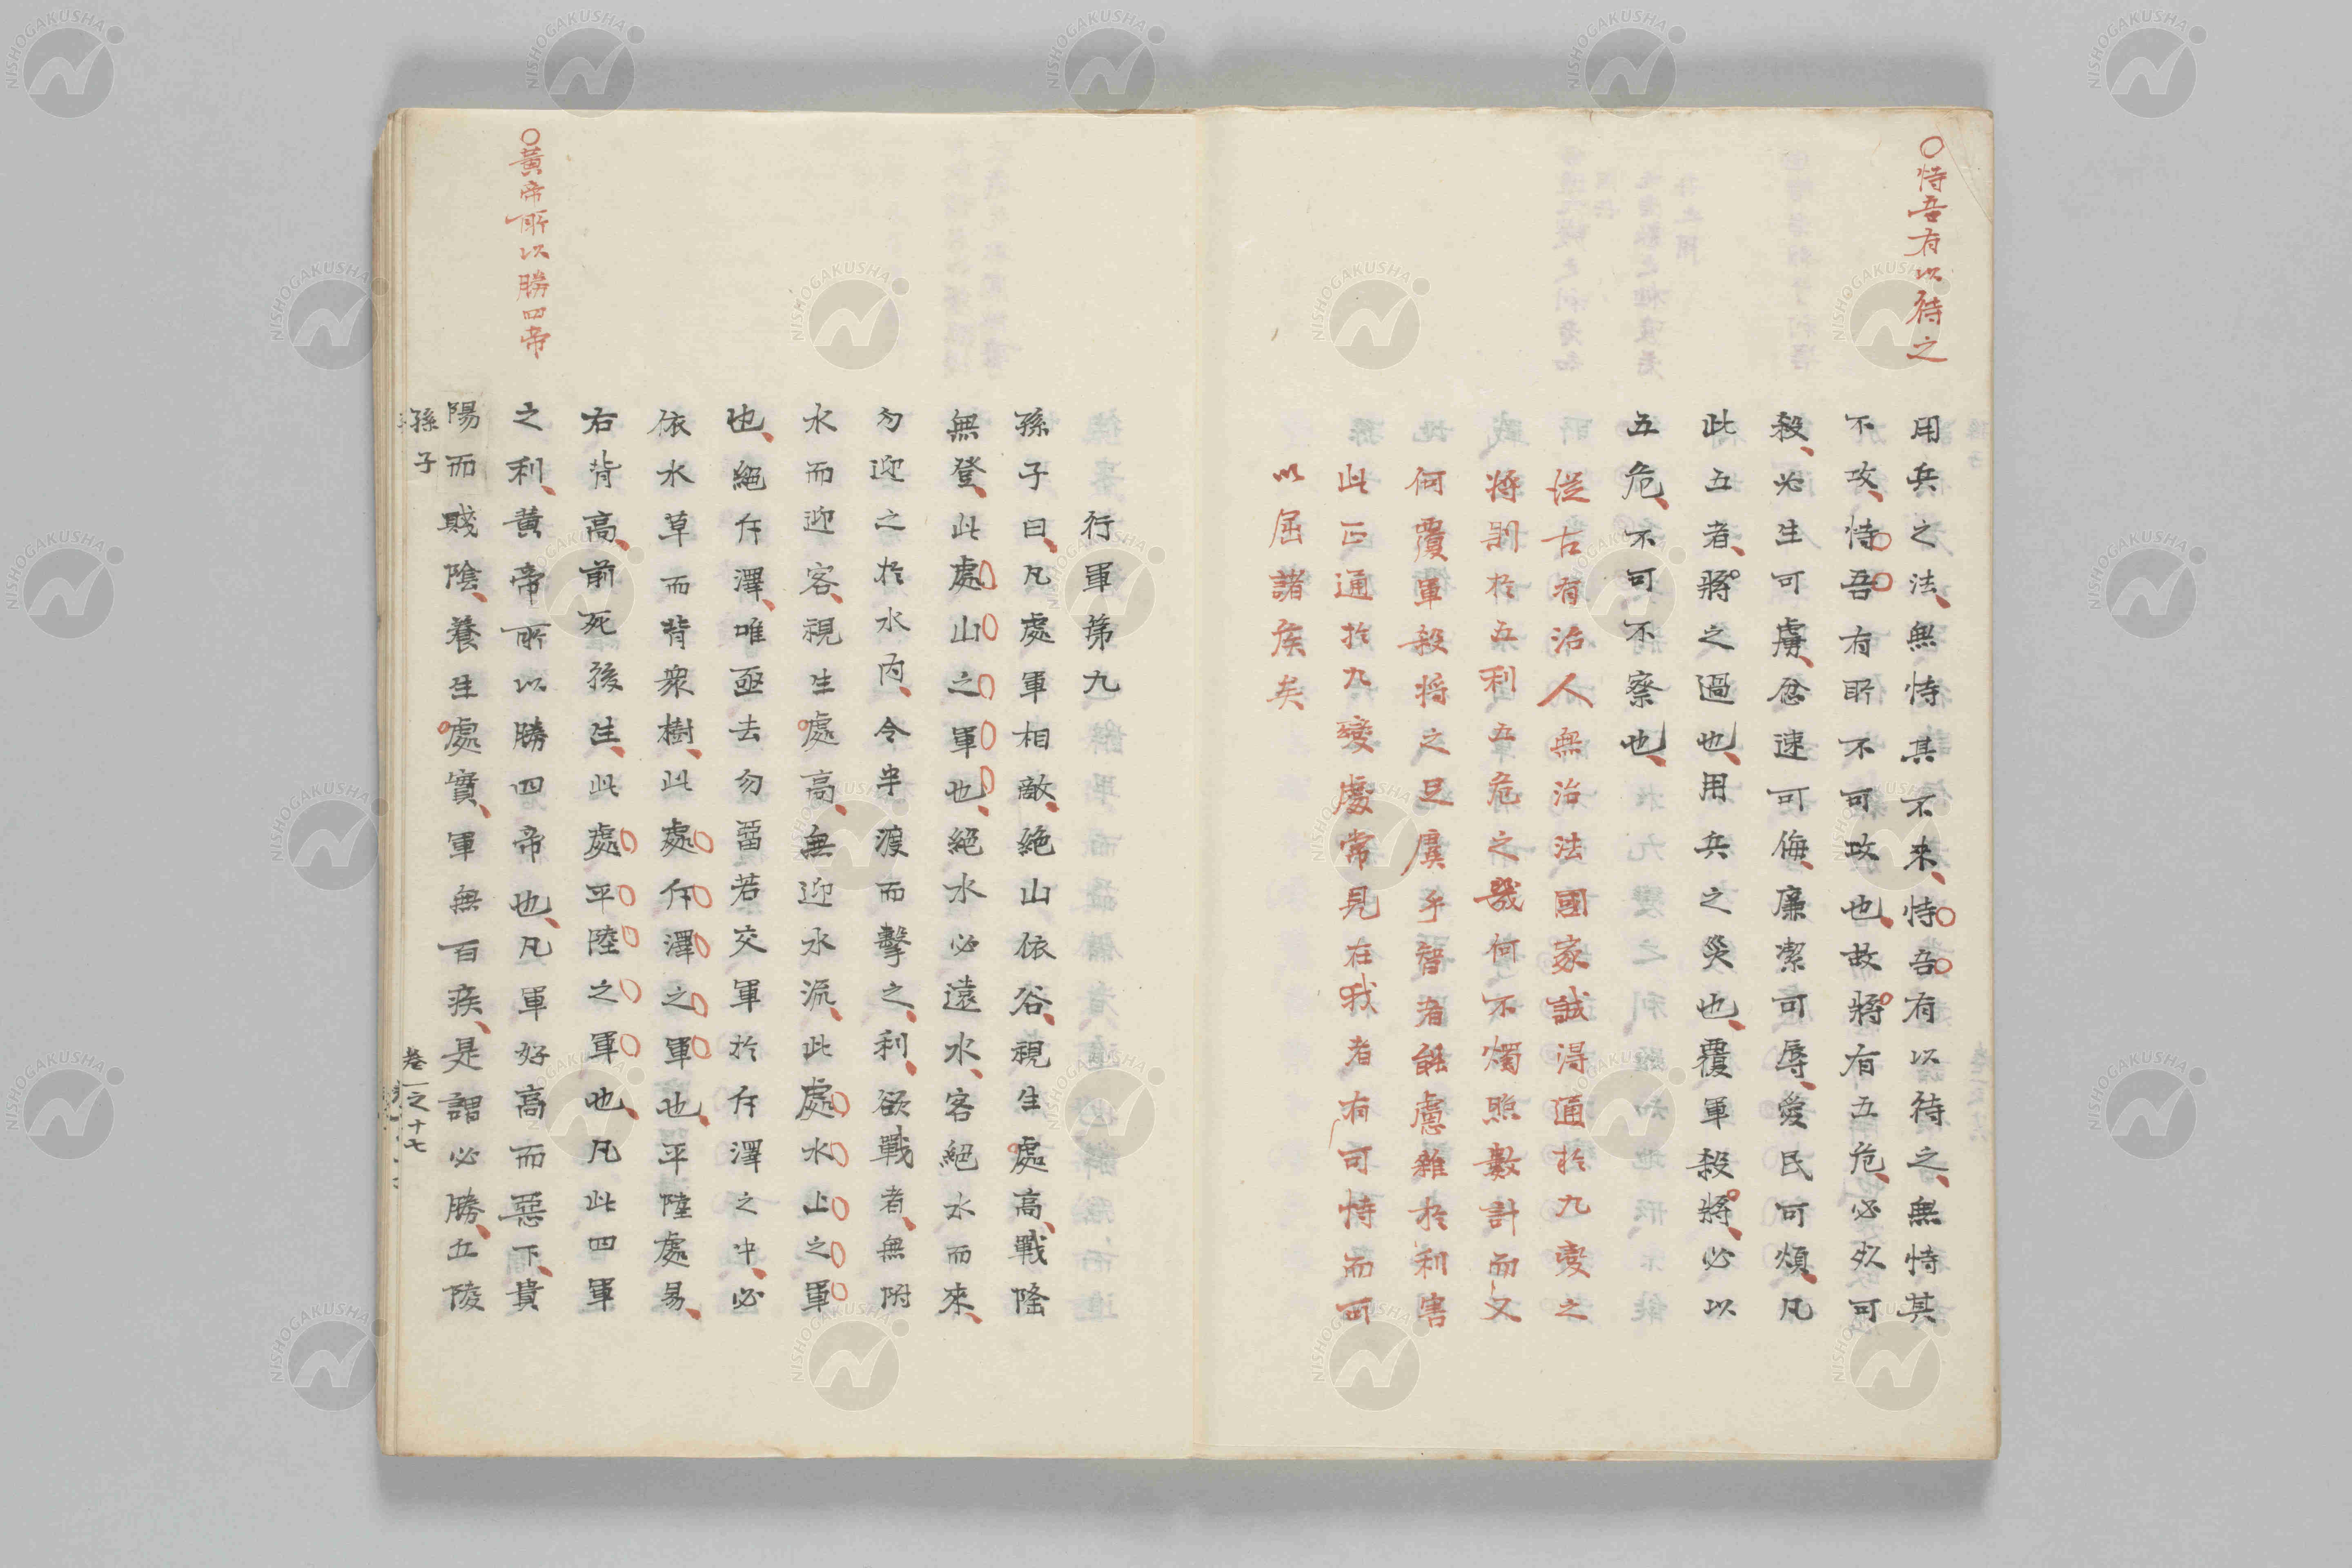 〇恃吾有以待之
用兵之法無恃其不来恃吾有以待之無恃其
不攻恃吾有所不可攻也故將有五危必死可
殺必生可虜忿速可侮廉潔可辱愛民可煩凡
此五者將之過也用兵之災也覆軍殺將必以
五危不可不察也
從古有治人無治法國家誠得通於九變之
將則於五利五危之幾何不燭照數計而又
何覆軍殺将之足虞乎智者能慮雜於利害
此正通於九變處常見在我者有可恃而可
以屈諸侯矣
行軍第九
孫子曰凡處軍相敵絶山依谷視生處高戰隆
無登此處山之軍也絕水必遠水客絕水而來
勿迎之於水内令半渡而擊之利欲戰者無附
水而迎客視生處高無迎水流此處水上之軍
也絕斥澤唯亟去勿畱若交軍於斥澤之中必
依水草而背衆樹此處斥澤之軍也平陸處易
右背高前死後生此處平陸之軍也凡此四軍
〇黃帝所以勝四帝
之利黃帝所以勝四帝也凡軍好高而惡下貴
陽而賤陰養生處實軍無百疾是謂必勝丘陵
孫子
卷一之十七
NISHOGAKUSHA